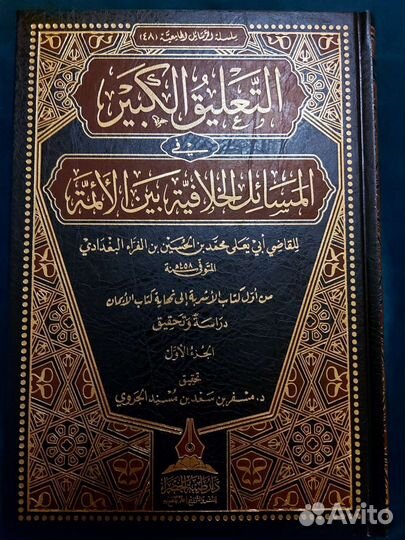 سلسلة الرسائل الجامعية (٤٨)
التعليق الكبير
في
المسائل الخلافية بين الأئمة
للقاضي أبي يعلى محمد بن الحسين بن الفراء البغدادي
المتوفى سنة ٤٥٨هـ
من أول كتاب الأشربة إلى نهاية كتاب الأيمان
دراسة وتحقيق
الجزء الأول
تحقيق
د. مسفر بن سعد بن مسند الجروي
Avito